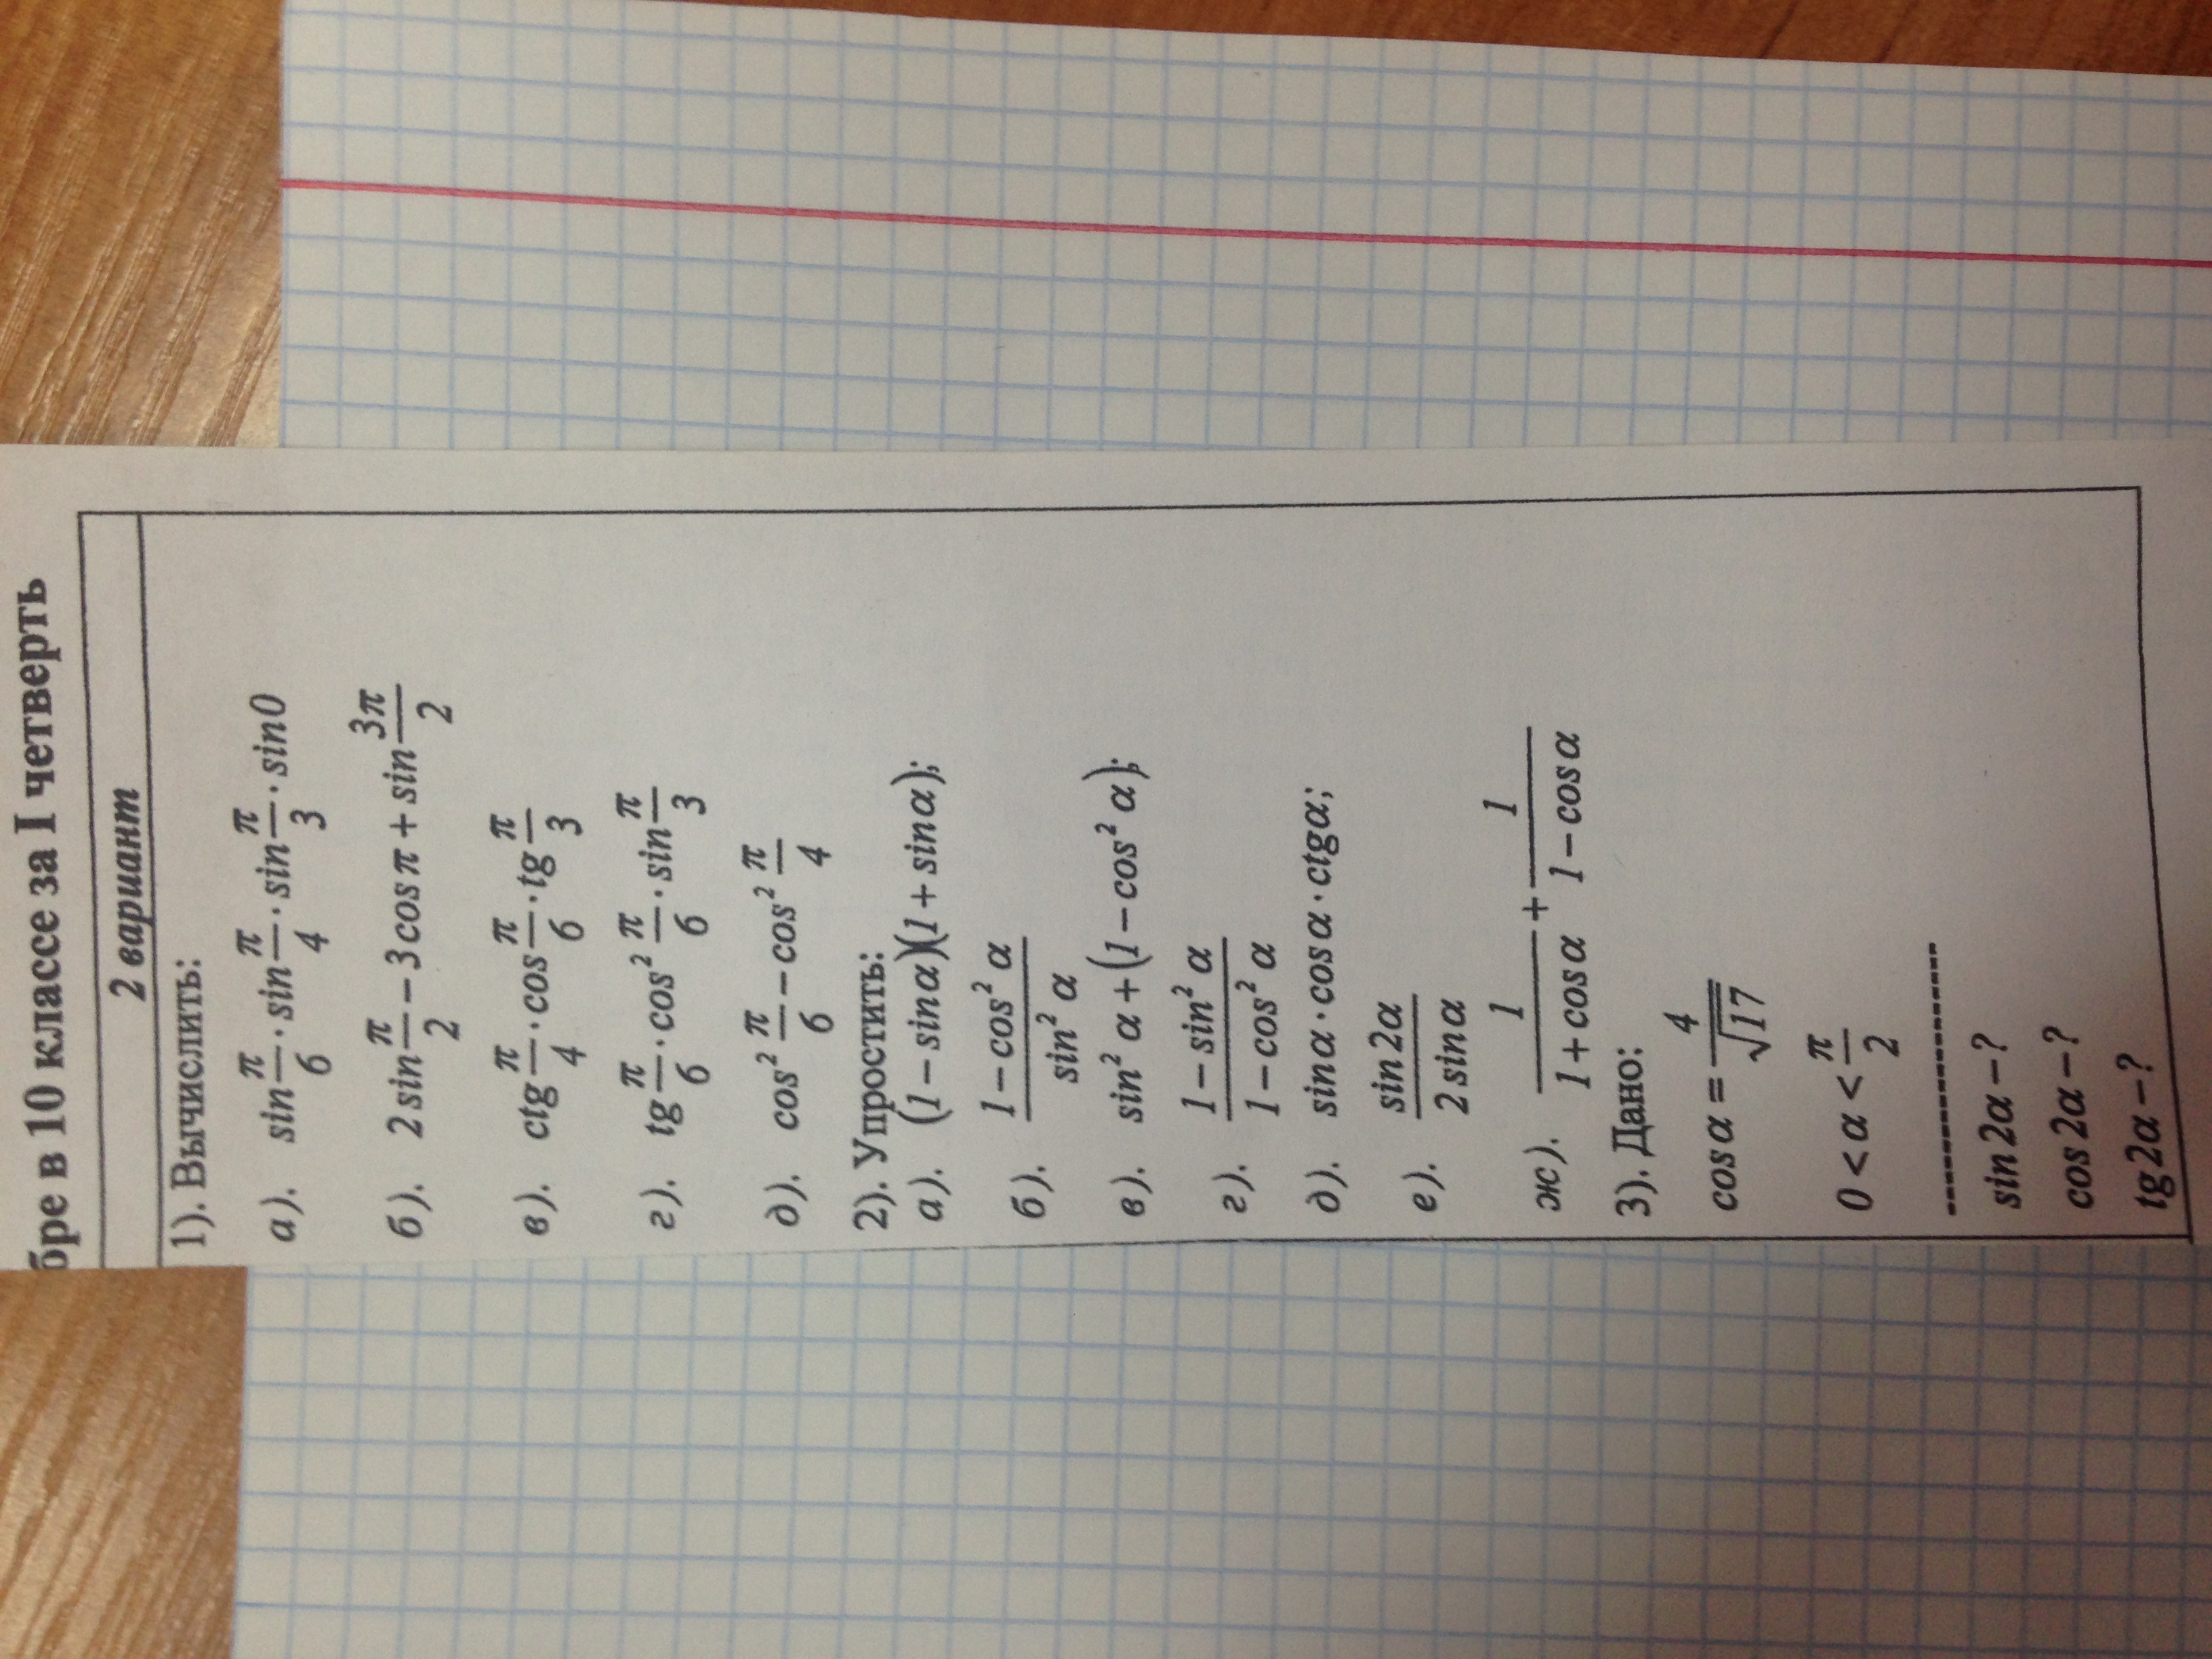 бре в 10 классе за I четверть
2 вариант
1). Вычислить:
а). sin π/6 · sin π/4 · sin π/3 · sin0
б). 2 sin π/2 − 3 cos π + sin 3π/2
в). ctg π/4 · cos π/6 · tg π/3
г). tg π/6 · cos² π/6 · sin π/3
д). cos² π/6 − cos² π/4
2). Упростить:
а). (1 − sin α)(1 + sin α);
б). (1 − cos² α)/(sin² α)
в). sin² α + (1 − cos² α);
г). (1 − sin² α)/(1 − cos² α)
д). sin α · cos α · ctgα;
е). (sin 2α)/(2 sin α)
ж). 1/(1 + cos α) + 1/(1 − cos α)
3). Дано:
cos α = 4/√17
0 < α < π/2
--------------------
sin 2α − ?
cos 2α − ?
tg 2α − ?